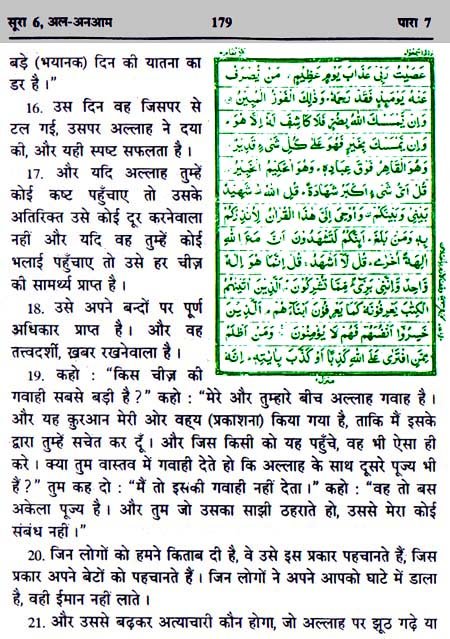 सूरा 6, अल-अनआम
179
पारा 7
बड़े (भयानक) दिन की यातना का
डर है।"
16. उस दिन वह जिसपर से
टल गई, उसपर अल्लाह ने दया
की, और यही स्पष्ट सफलता है।
17. और यदि अल्लाह तुम्हें
कोई कष्ट पहुँचाए तो उसके
अतिरिक्त उसे कोई दूर करनेवाला
नहीं और यदि वह तुम्हें कोई
भलाई पहुँचाए तो उसे हर चीज़
की सामर्थ्य प्राप्त है।
18. उसे अपने बन्दों पर पूर्ण
अधिकार प्राप्त है। और वह
तत्त्वदर्शी, ख़बर रखनेवाला है।
عَصَيْتُ رَبِّي عَذَابَ يَوْمٍ عَظِيمٍ ۝ مَنْ يُصْرَفْ
عَنْهُ يَوْمَئِذٍ فَقَدْ رَحِمَهٗ ۚ وَذٰلِكَ الْفَوْزُ الْمُبِينُ ۝
وَإِنْ يَمْسَسْكَ اللّٰهُ بِضُرٍّ فَلَا كَاشِفَ لَهٗ إِلَّا هُوَ ۚ
وَإِنْ يَمْسَسْكَ بِخَيْرٍ فَهُوَ عَلٰى كُلِّ شَيْءٍ قَدِيرٌ ۝
وَهُوَ الْقَاهِرُ فَوْقَ عِبَادِهٖ ۚ وَهُوَ الْحَكِيمُ الْخَبِيرُ ۝
قُلْ أَيُّ شَيْءٍ أَكْبَرُ شَهَادَةً ۚ قُلِ اللّٰهُ ۙ شَهِيدٌ
بَيْنِي وَبَيْنَكُمْ ۚ وَأُوحِيَ إِلَيَّ هٰذَا الْقُرْآنُ لِأُنْذِرَكُمْ
بِهٖ وَمَنْ بَلَغَ ۚ أَئِنَّكُمْ لَتَشْهَدُونَ أَنَّ مَعَ اللّٰهِ
آلِهَةً أُخْرٰى ۚ قُلْ لَا أَشْهَدُ ۚ قُلْ إِنَّمَا هُوَ إِلٰهٌ
وَاحِدٌ وَإِنَّنِي بَرِيءٌ مِمَّا تُشْرِكُونَ ۝ الَّذِينَ آتَيْنٰهُمُ
الْكِتٰبَ يَعْرِفُونَهٗ كَمَا يَعْرِفُونَ أَبْنَاءَهُمْ ۘ الَّذِينَ
خَسِرُوا أَنْفُسَهُمْ فَهُمْ لَا يُؤْمِنُونَ ۝ وَمَنْ أَظْلَمُ
مِمَّنِ افْتَرٰى عَلَى اللّٰهِ كَذِبًا أَوْ كَذَّبَ بِآيٰتِهٖ ۚ إِنَّهٗ
منزل
19. कहो : "किस चीज़ की
गवाही सबसे बड़ी है?" कहो : "मेरे और तुम्हारे बीच अल्लाह गवाह है।
और यह क़ुरआन मेरी ओर वह्य (प्रकाशना) किया गया है, ताकि मैं इसके
द्वारा तुम्हें सचेत कर दूँ। और जिस किसी को यह पहुँचे, वह भी ऐसा ही
करे। क्या तुम वास्तव में गवाही देते हो कि अल्लाह के साथ दूसरे पूज्य भी
हैं?" तुम कह दो : "मैं तो इसकी गवाही नहीं देता।" कहो : "वह तो बस
अकेला पूज्य है। और तुम जो उसका साझी ठहराते हो, उससे मेरा कोई
संबंध नहीं।"
20. जिन लोगों को हमने किताब दी है, वे उसे इस प्रकार पहचानते हैं, जिस
प्रकार अपने बेटों को पहचानते हैं। जिन लोगों ने अपने आपको घाटे में डाला
है, वही ईमान नहीं लाते।
21. और उससे बढ़कर अत्याचारी कौन होगा, जो अल्लाह पर झूठ गढ़े या